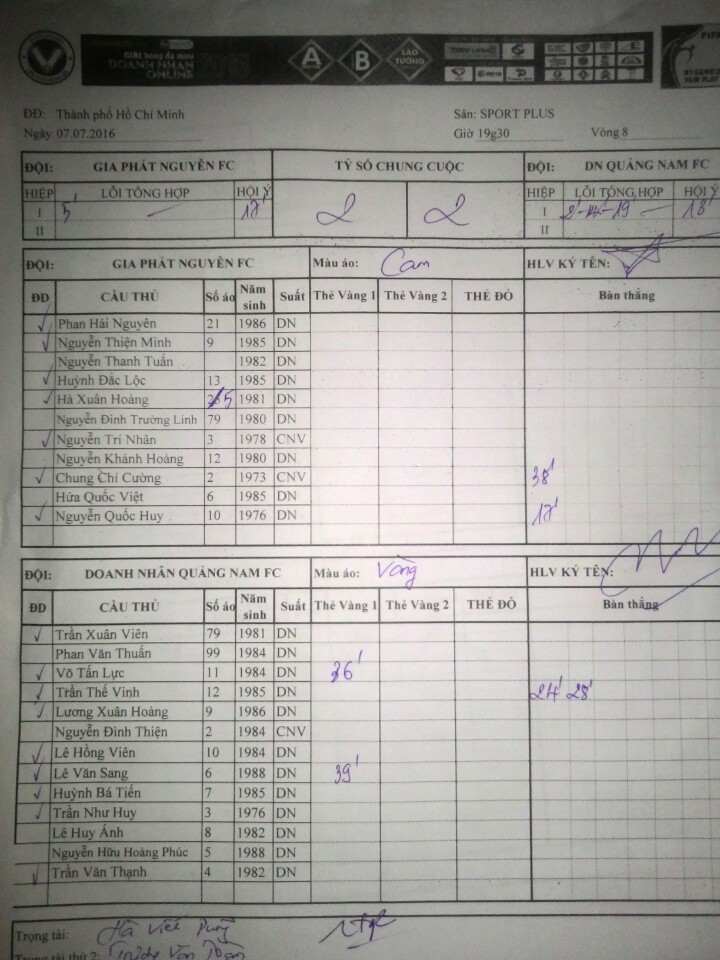 GIẢI bóng đá mini
DOANH NHÂN
ONLINE
A B LAO TƯỞNG
ĐĐ: Thành phố Hồ Chí Minh Sân: SPORT PLUS
Ngày 07.07.2016 Giờ 19g30 Vòng 8
ĐỘI: GIA PHÁT NGUYÊN FC TỶ SỐ CHUNG CUỘC ĐỘI: DN QUẢNG NAM FC
HIỆP LỖI TỔNG HỢP HỘI Ý 2 2 HIỆP LỖI TỔNG HỢP HỘI Ý
I 5' 17' I 8'-14'-19' 13'
II II
ĐỘI: GIA PHÁT NGUYÊN FC Màu áo: Cam HLV KÝ TÊN:
ĐD CẦU THỦ Số áo Năm sinh Suất Thẻ Vàng 1 Thẻ Vàng 2 THẺ ĐỎ Bàn thắng
✓ Phan Hải Nguyên 21 1986 DN
✓ Nguyễn Thiện Minh 9 1985 DN
Nguyễn Thanh Tuấn 1982 DN
✓ Huỳnh Đắc Lộc 13 1985 DN
✓ Hà Xuân Hoàng 5 1981 DN
Nguyễn Đình Trường Linh 79 1980 DN
✓ Nguyễn Trí Nhân 3 1978 CNV
Nguyễn Khánh Hoàng 12 1980 DN
✓ Chung Chí Cường 2 1973 CNV 38'
Hứa Quốc Việt 6 1985 DN
✓ Nguyễn Quốc Huy 10 1976 DN 17'
ĐỘI: DOANH NHÂN QUẢNG NAM FC Màu áo: Vàng HLV KÝ TÊN:
ĐD CẦU THỦ Số áo Năm sinh Suất Thẻ Vàng 1 Thẻ Vàng 2 THẺ ĐỎ Bàn thắng
✓ Trần Xuân Viên 79 1981 DN
Phan Văn Thuấn 99 1984 DN
✓ Võ Tấn Lực 11 1984 DN 36'
✓ Trần Thế Vinh 12 1985 DN 24' 28'
✓ Lương Xuân Hoàng 9 1986 DN
Nguyễn Đình Thiện 2 1984 CNV
✓ Lê Hồng Viên 10 1984 DN
✓ Lê Văn Sang 6 1988 DN 39'
✓ Huỳnh Bá Tiến 7 1985 DN
✓ Trần Như Huy 3 1976 DN
Lê Huy Ánh 8 1982 DN
Nguyễn Hữu Hoàng Phúc 5 1988 DN
✓ Trần Văn Thạnh 4 1982 DN
Trọng tài: Hà Viết
Trọng tài thứ 2: Văn